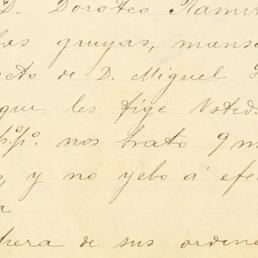 D. Doroteo Ramir
las gruyas, mans
cto de D. Miguel
que les fije Usted.
p.p. nos trato 9 m
, y no yebo á efe
a
pera de sus ordene